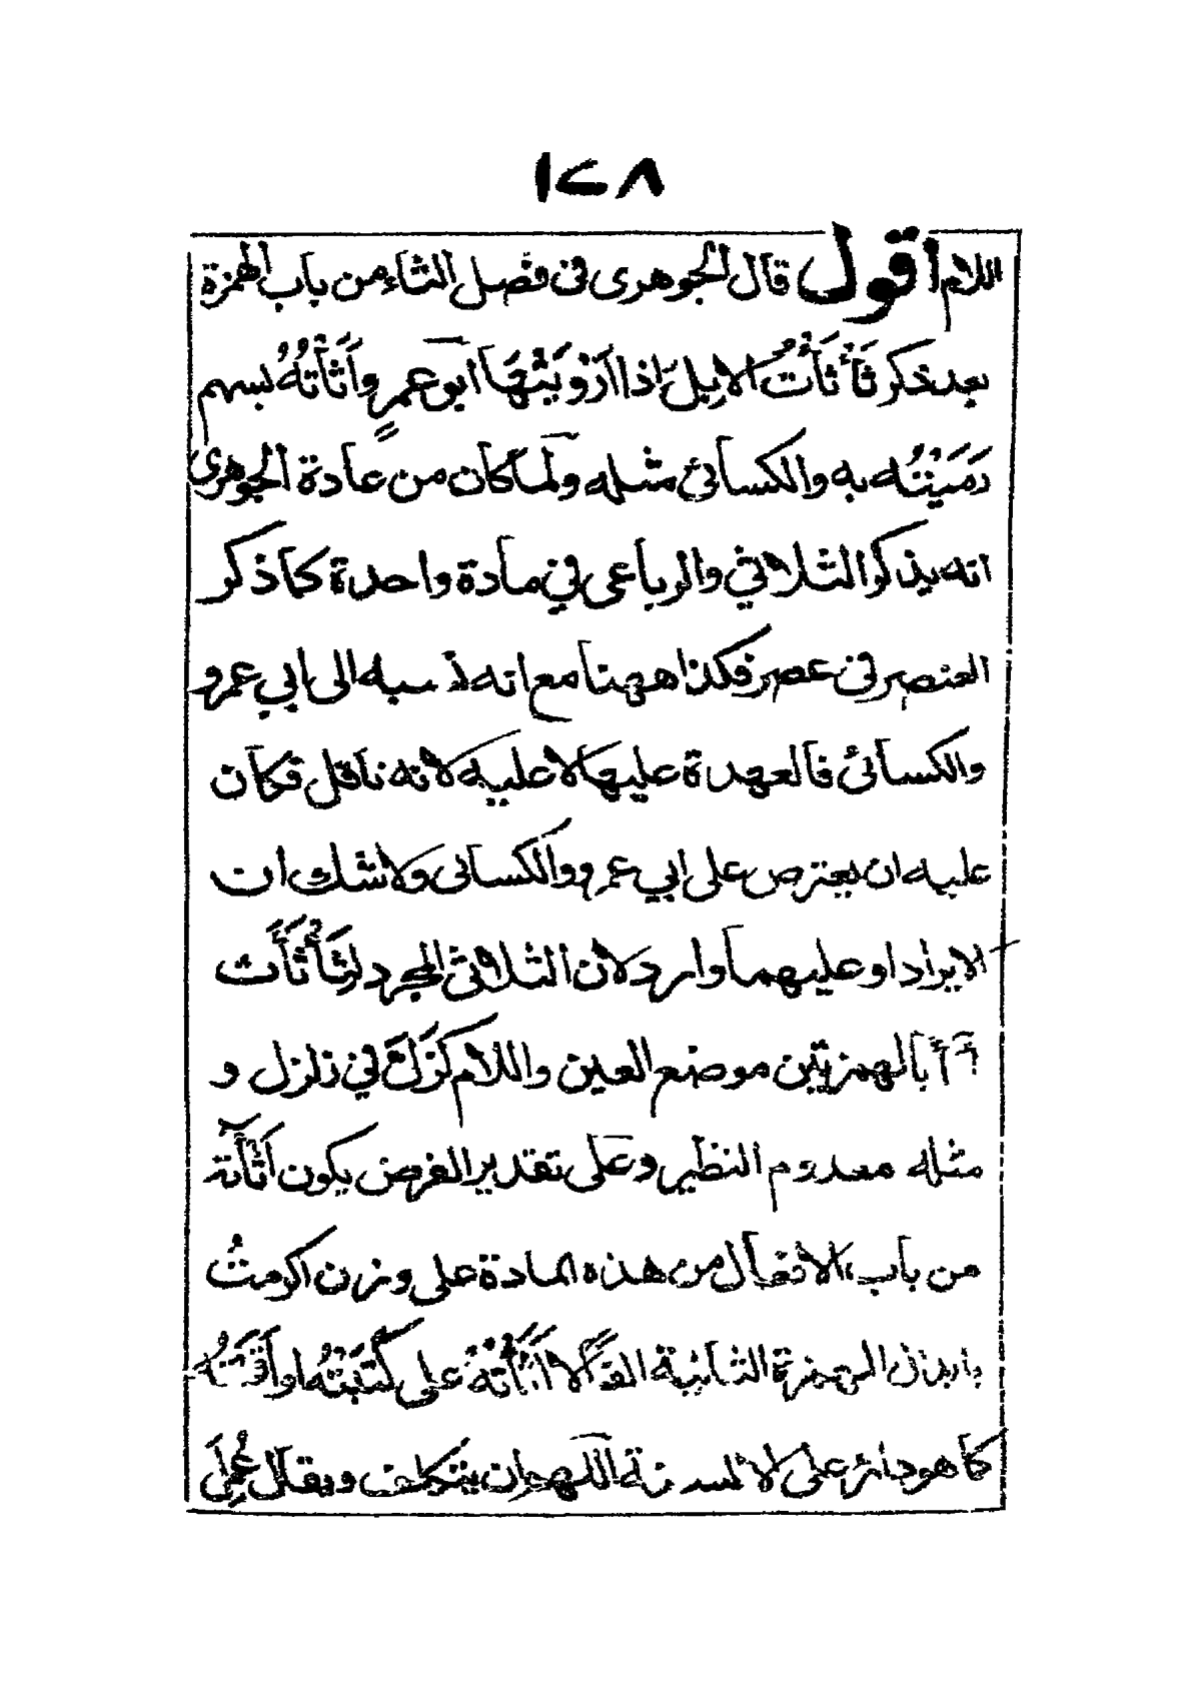 ١٢٨
اللام اقول قال الجوهرى فى فصل الثاء من باب الهمزة
بعد ذكر ثَأْثَأْتُ الابِلَ اذا اَرْوَيْتَهَا ابو عمرٍ وأَثَأْتُهُ بسهم
رَمَيْتُه به والكسائئ مثله ولما كان من عادة الجوهرى
انه يذكر الثلاثي والرباعى في مادة واحدة كما ذكر
العنصر فى عصر فكذا ههنا مع انه نسبه الى ابي عمرو
والكسائئ فالعهدة عليها لا عليه لانه ناقل فكان
عليه ان يعترض على ابي عمرو والكسائى ولا شك ان
الايراد او عليهما وارد لان الثلاثى المجرد لِثَأْثَأَت
ثأأ بالهمزتين موضع العين واللام كَزَلَلَ في زلزل و
مثله معدوم النظير وعلى تقدير الفرض يكون اَثْأَأْته
من باب الافعال من هذه المادة على وزن اكرمتُ
بابدال الهمزة الثانية الفًا لا اَثَأْتُهُ على كَتَبْتُهُ او أَقَمْتُهُ
كما هو دائر على الالسنة اللهم ان يتكلف ويقال عُمِلَ